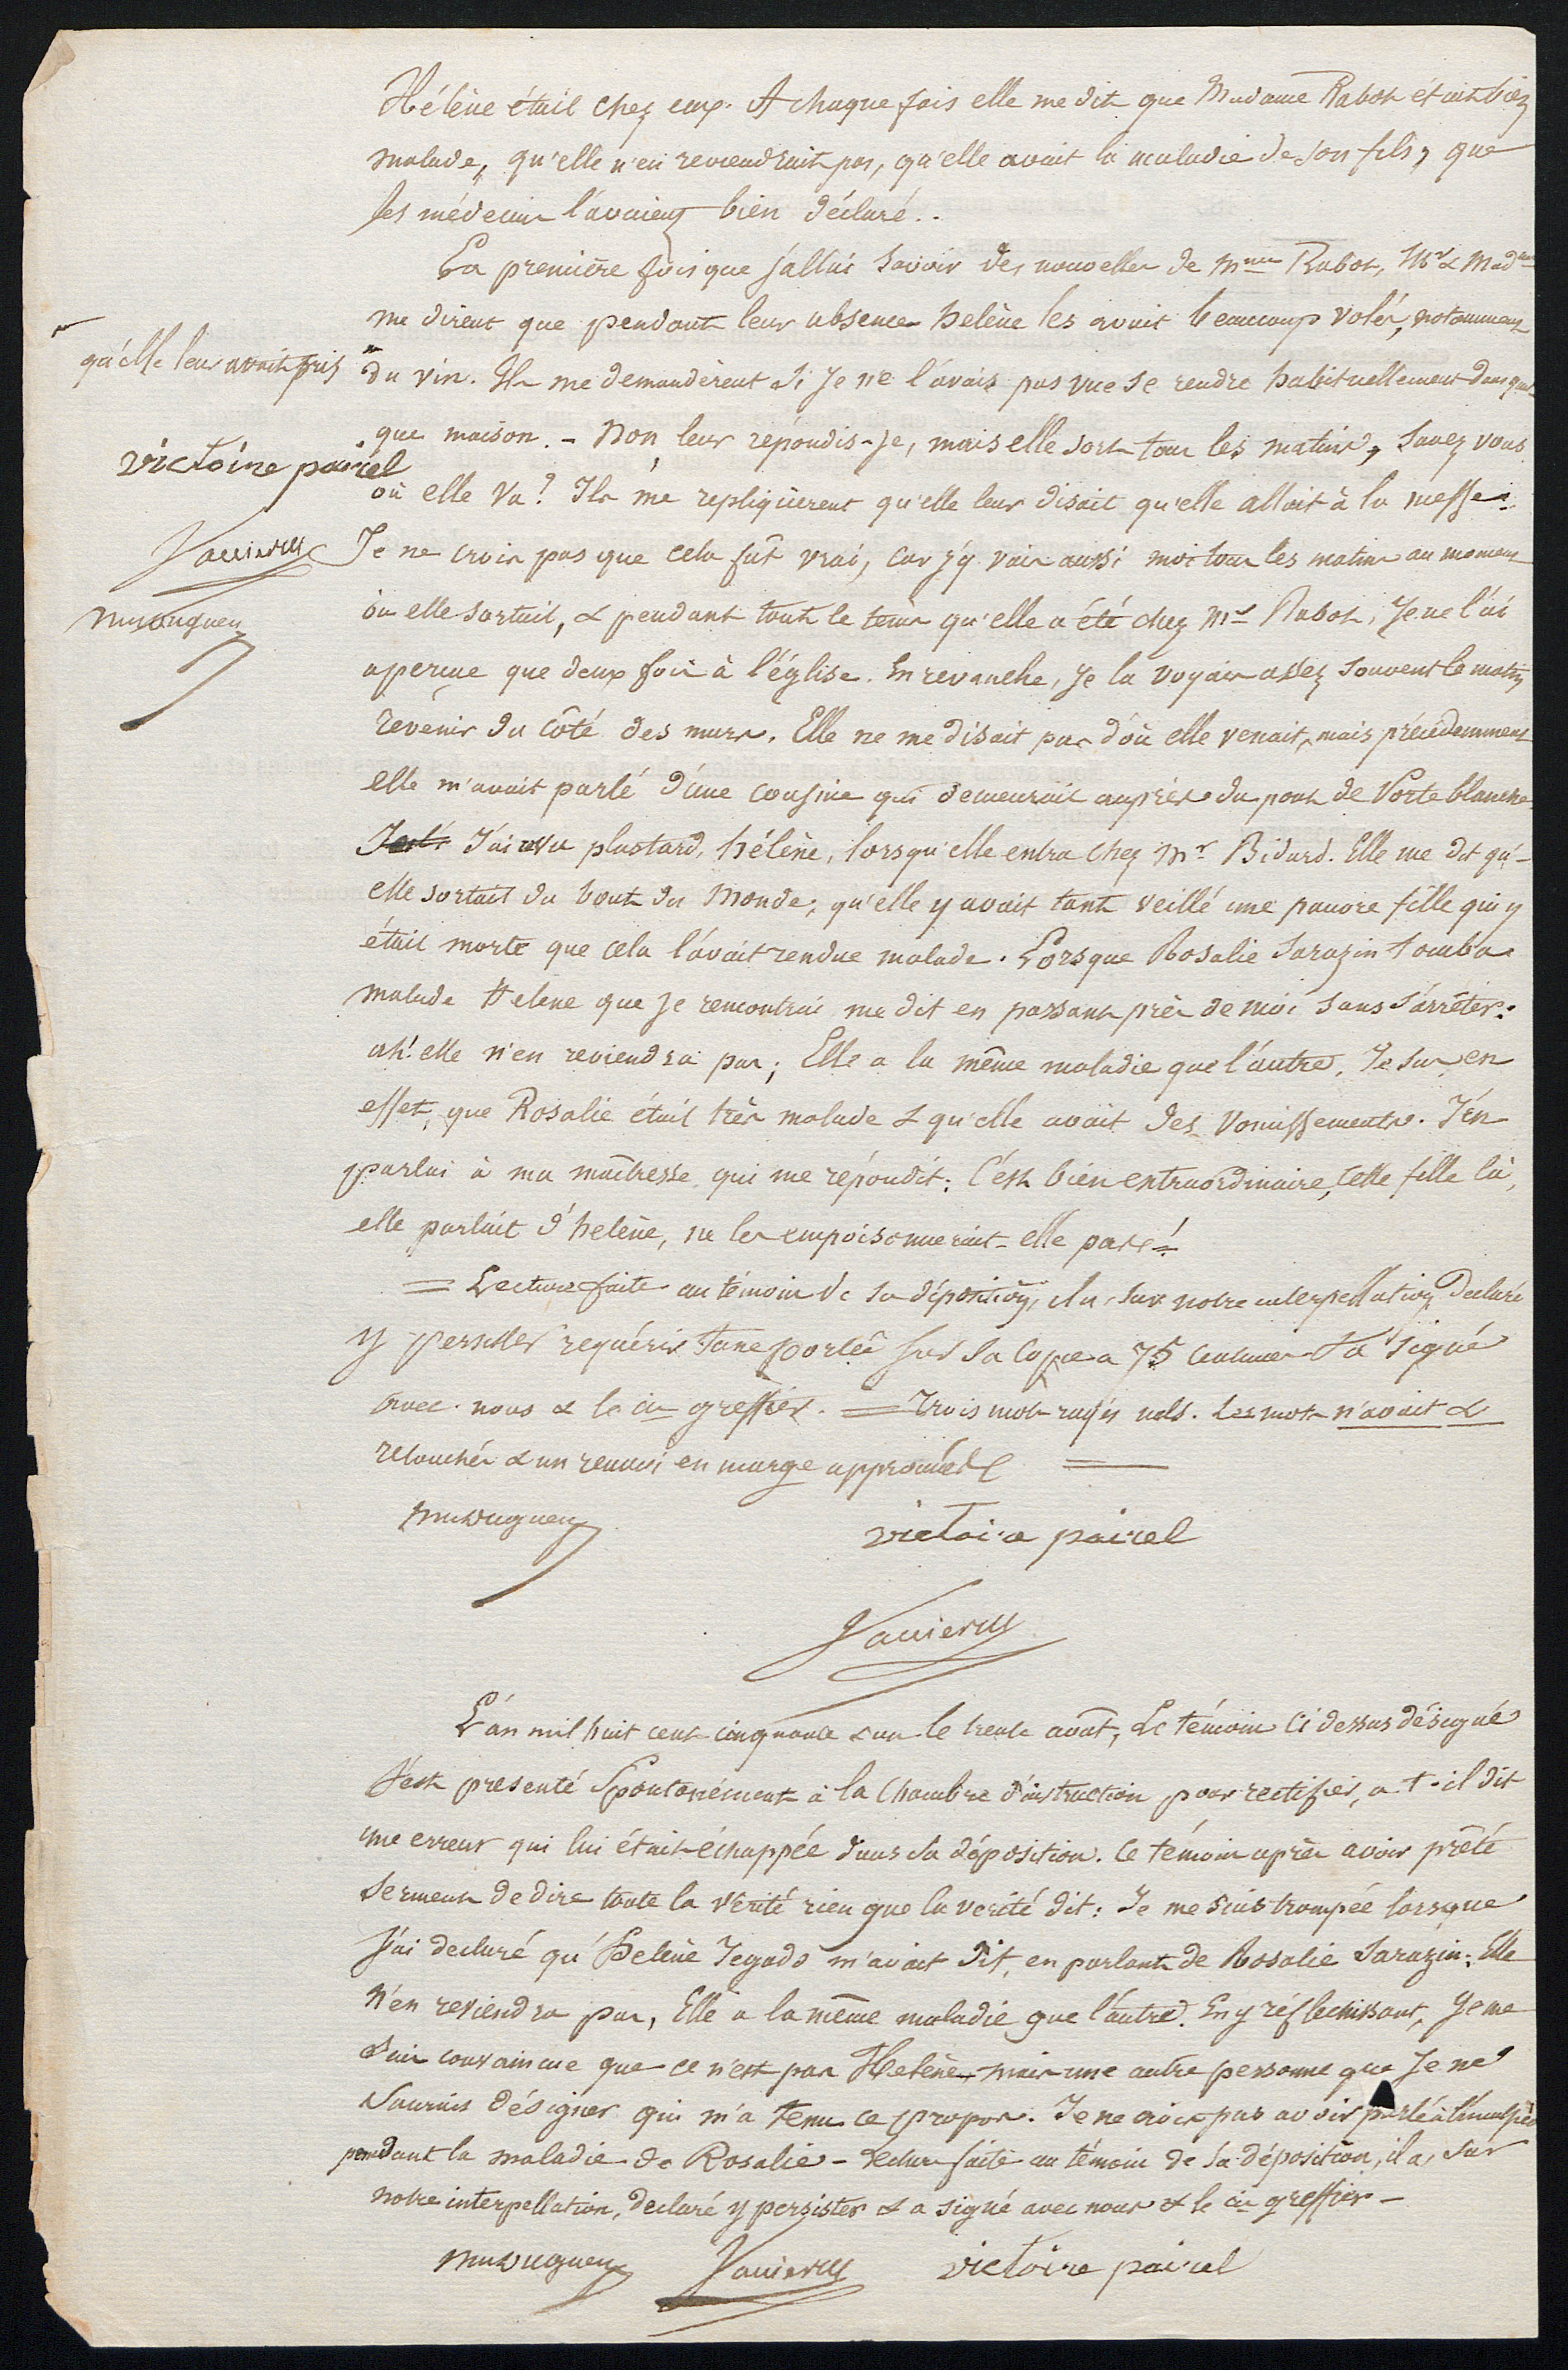 Hélène était chez eux. A chaque fois elle me dit que Madame Rabot était bien
malade, qu'elle n'en reviendrait pas, qu'elle avait la maladie de son fils, que
les médecins l'avaient bien déclaré..
La première fois que j'allai savoir des nouvelles de Mme Rabot, Mr & Madme
me dirent que pendant leur absence helène les avait beaucoup volés, notamment
qu'elle leur avait pris
du vin. Ils me demandèrent si je ne l'avais pas vue se rendre habituellement dans quel-
que maison. - Non, leur répondis-je, mais elle sort tous les matins, savez vous
victoire pairel
où elle va? Ils me repliquèrent qu'elle leur disait qu'elle allait à la messe.
Je ne crois pas que cela fût vrai, car j'y vais aussi moi tous les matins au moment
où elle sortait, & pendant tout le tems qu'elle a été chez Mr Rabot, je ne l'ai
aperçue que deux fois à l'église. En revanche, je la voyais assez souvent le matin
revenir du côté des murs. Elle ne me disait pas d'où elle venait, mais précédemment
elle m'avait parlé d'une cousine qui demeurait auprès du pont de Porteblanche.
J'ai revu plustard, hélène, lorsqu'elle entra chez Mr Bidard. Elle me dit qu'-
elle sortait du bout du Monde, qu'elle y avait tant veillé une pauvre fille qui y
était morte que cela l'avait rendue malade. Lorsque Rosalie Sarazin tomba
malade Helene que je rencontrai me dit en passant près de moi sans s'arrêter:
ah! elle n'en reviendra pas; Elle a la même maladie que l'autre. Je sus en
effet, que Rosalie était très malade & qu'elle avait des vomissements. J'en
parlai à ma maîtresse qui me répondit: C'est bien extraordinaire, cette fille là,
elle parlait d'helène, ne les empoisonnerait-elle pas!
= Lecture faite au témoin de sa déposition, il a, sur notre interpellation, declaré
y persister requérir taxe portée sur sa copie a 75 centimes & a signé
avec nous & le cis greffier. = Trois mots rayés nuls. Les mots n'avait &
retouchés & un renvoi en marge approuvés
victoire pairel
L'an mil huit cent cinquante & un le trente août, Le témoin ci dessus désigné
s'est presenté spontanément à la Chambre d'instruction pour rectifier, a-t-il dit
une erreur qui lui était échappée dans sa déposition. Ce témoin après avoir prêté
serment de dire toute la vérité rien que la verité dit: Je me suis trompée lorsque
j'ai declaré qu'Helène Jegado m'avait dit, en parlant de Rosalie Sarazin: Elle
n'en reviendra pas, Elle a la même maladie que l'autre. En y réflechissant, je me
suis convaincue que ce n'est pas Helène, mais une autre personne que je ne
saurais désigner qui m'a tenu ce propos. Je ne crois pas avoir parlé à l'inculpée
pendant la maladie de Rosalie - Lecture faite au témoin de sa déposition, il a, sur
notre interpellation, declaré y persister & a signé avec nous & le cis greffier -
victoire pairel